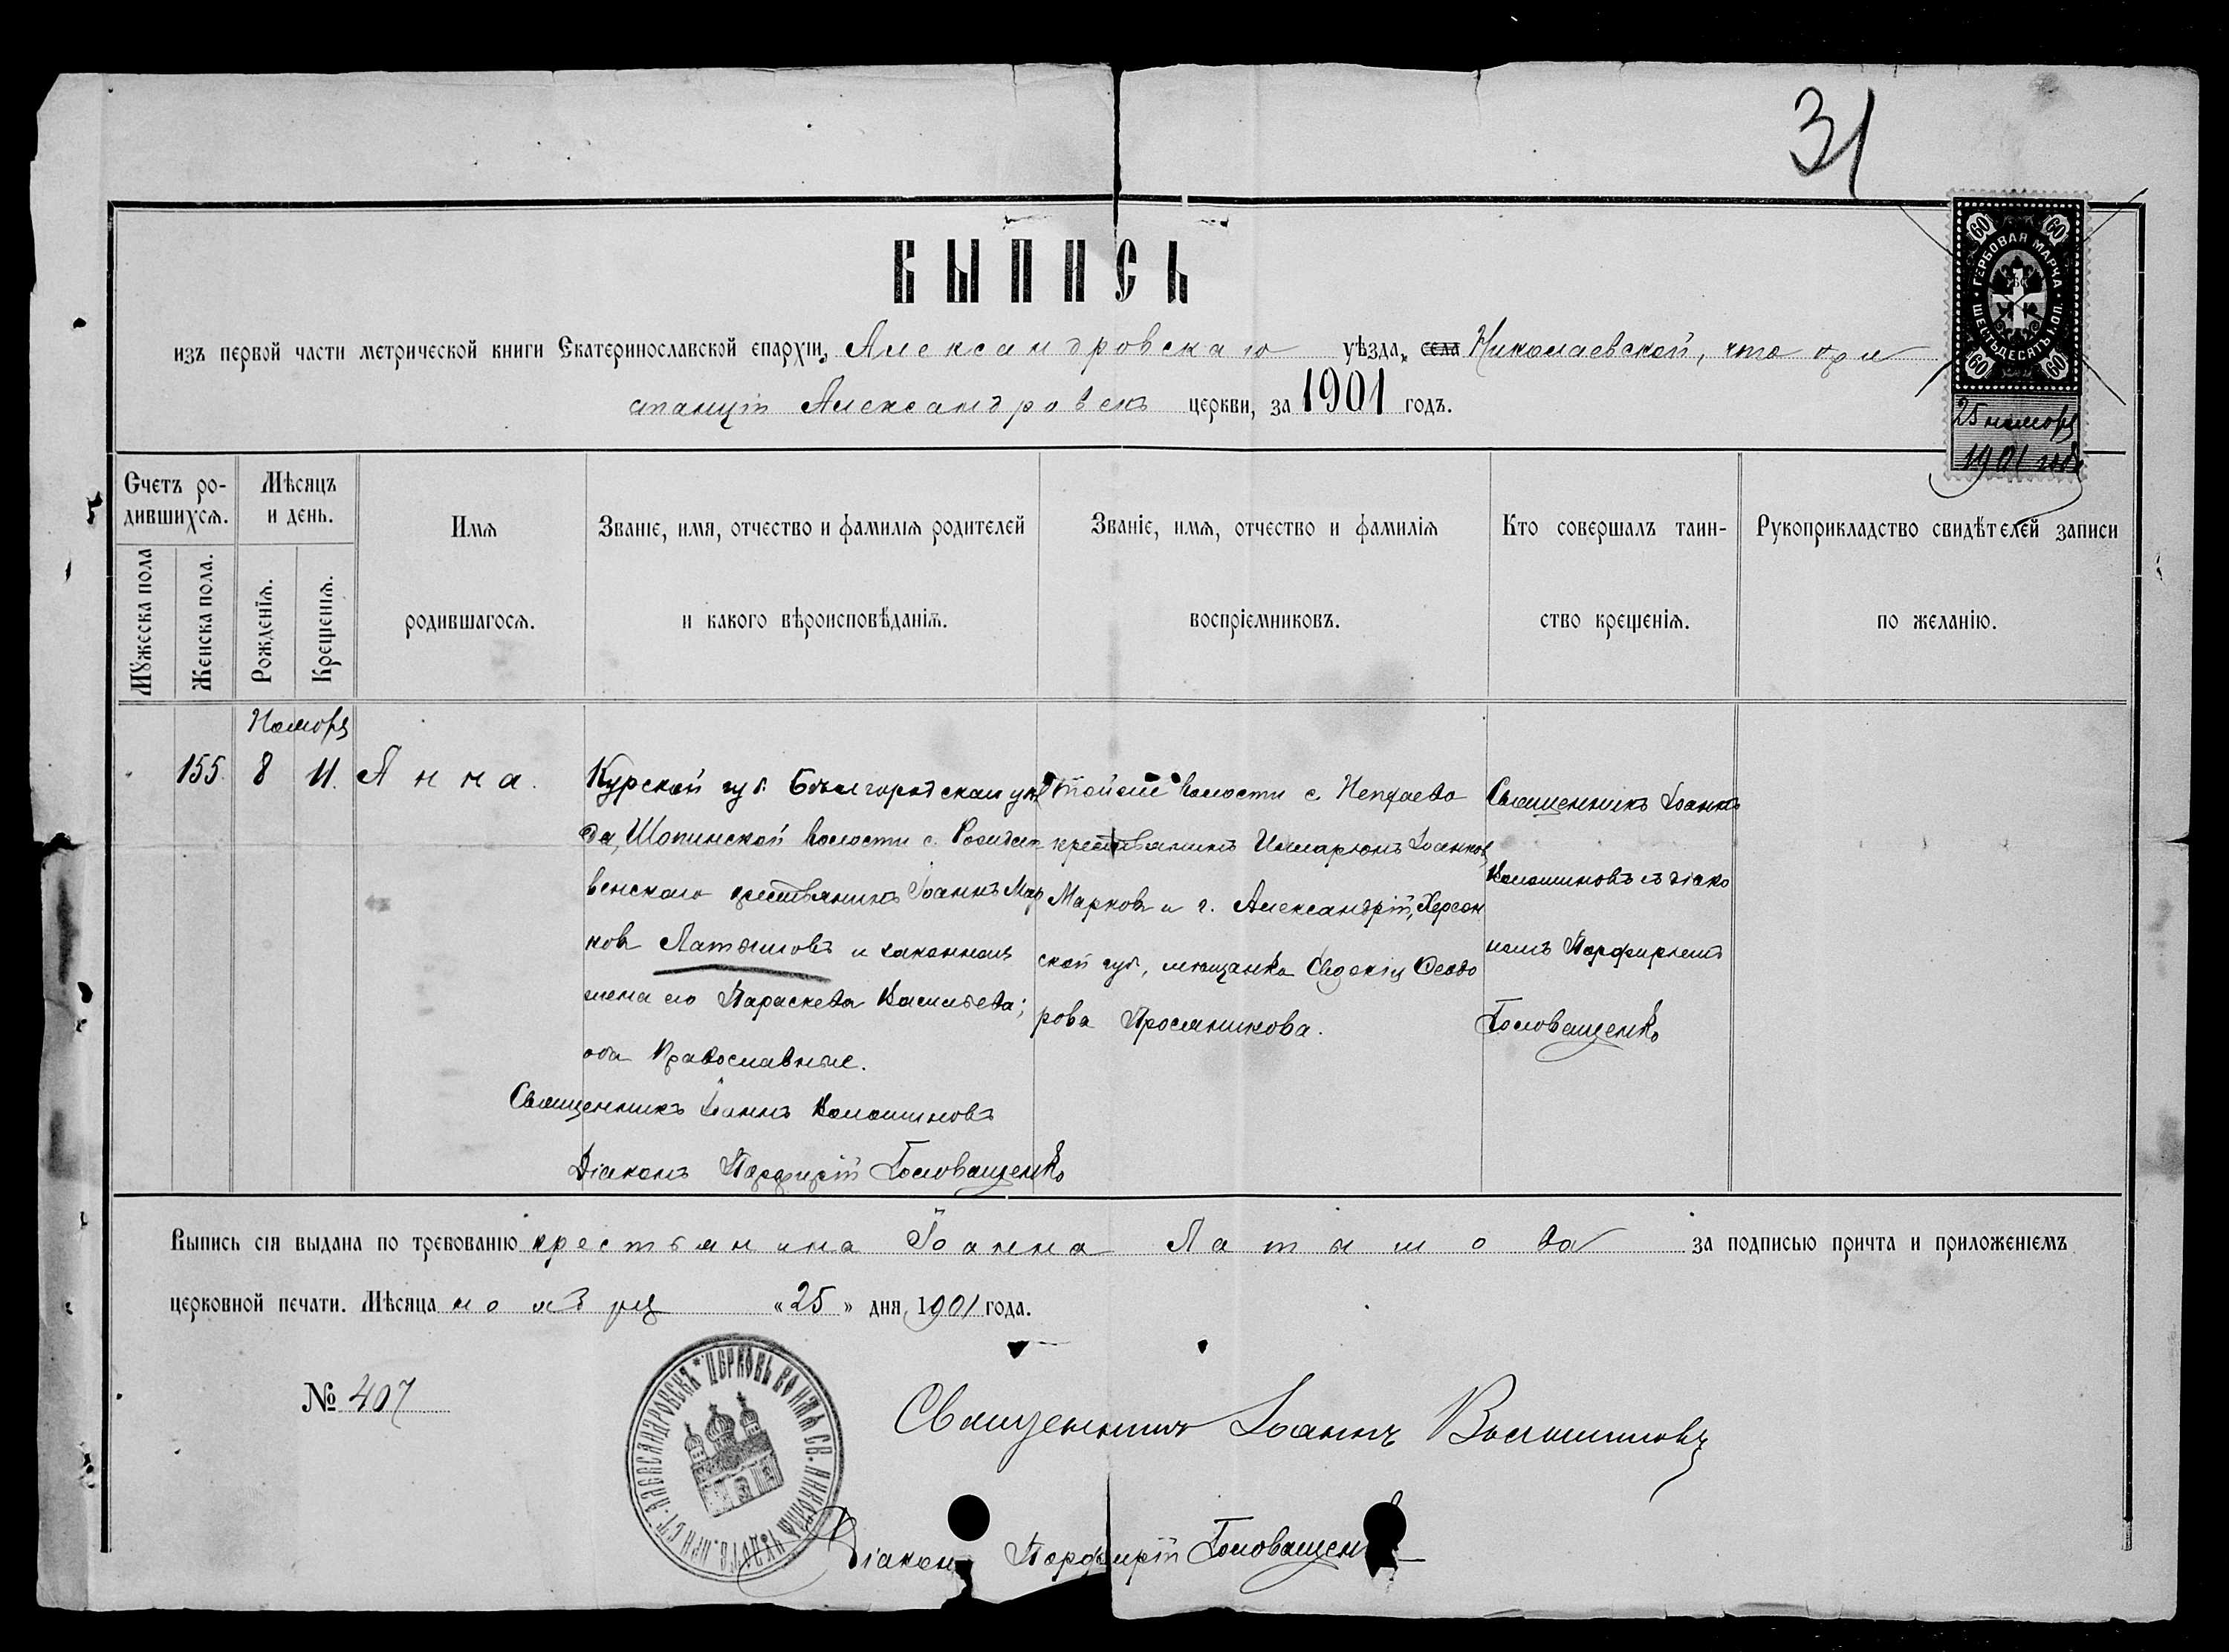 31
ВЫПИСЬ
изъ первой части метрической книги Екатеринославской епархіи, Александровскаго уѣзда, села Николаевской, что при
станціи Александровскъ церкви, за 1901 годъ.
ГЕРБОВАЯ МАРКА
ШЕСТЬДЕСЯТЪ КОП.
60 60 60 60
25 ноября
1901 года
Счетъ ро-
дившихся.
Мужеска пола
Женска пола.
Мѣсяцъ
и день.
Рожденія.
Крещенія.
Имя
родившагося.
Званіе, имя, отчество и фамилія родителей
и какого вѣроисповѣданія.
Званіе, имя, отчество и фамилія
воспріемниковъ.
Кто совершалъ таин-
ство крещенія.
Рукоприкладство свидѣтелей записи
по желанію.
Ноября
155. 8 11. Анна.
Курской губ. Бѣлгородскаго уѣз
да, Шопинской волости с. Рождест
венскаго крестьянинъ Іоаннъ Мар
ковъ Латышовъ и законная
жена его Параскева Васильева;
оба Православные.
Священникъ Іоаннъ Волошиновъ
Діаконъ Порфирій Головащенко
той же волости с. Непхаево
крестьянинъ Илларіонъ Іоанновъ
Марковъ и г. Александріи, Херсон
ской губ., мѣщанка Евдокія Ѳеодо
рова Просяникова.
Священникъ Іоаннъ
Волошиновъ съ діако
номъ Порфиріемъ
Головащенко
Выпись сія выдана по требованію крестьянина Іоанна Латышова за подписью причта и приложеніемъ
церковной печати. Мѣсяца ноября «25» дня, 1901 года.
№ 407
ЦЕРКОВЬ ВО ИМЯ СВ. НИКОЛАЯ ЧУДОТВ. ПРИ СТ. АЛЕКСАНДРОВСКЪ
Священникъ Іоаннъ Волошиновъ
Діаконъ Порфирій Головащенко